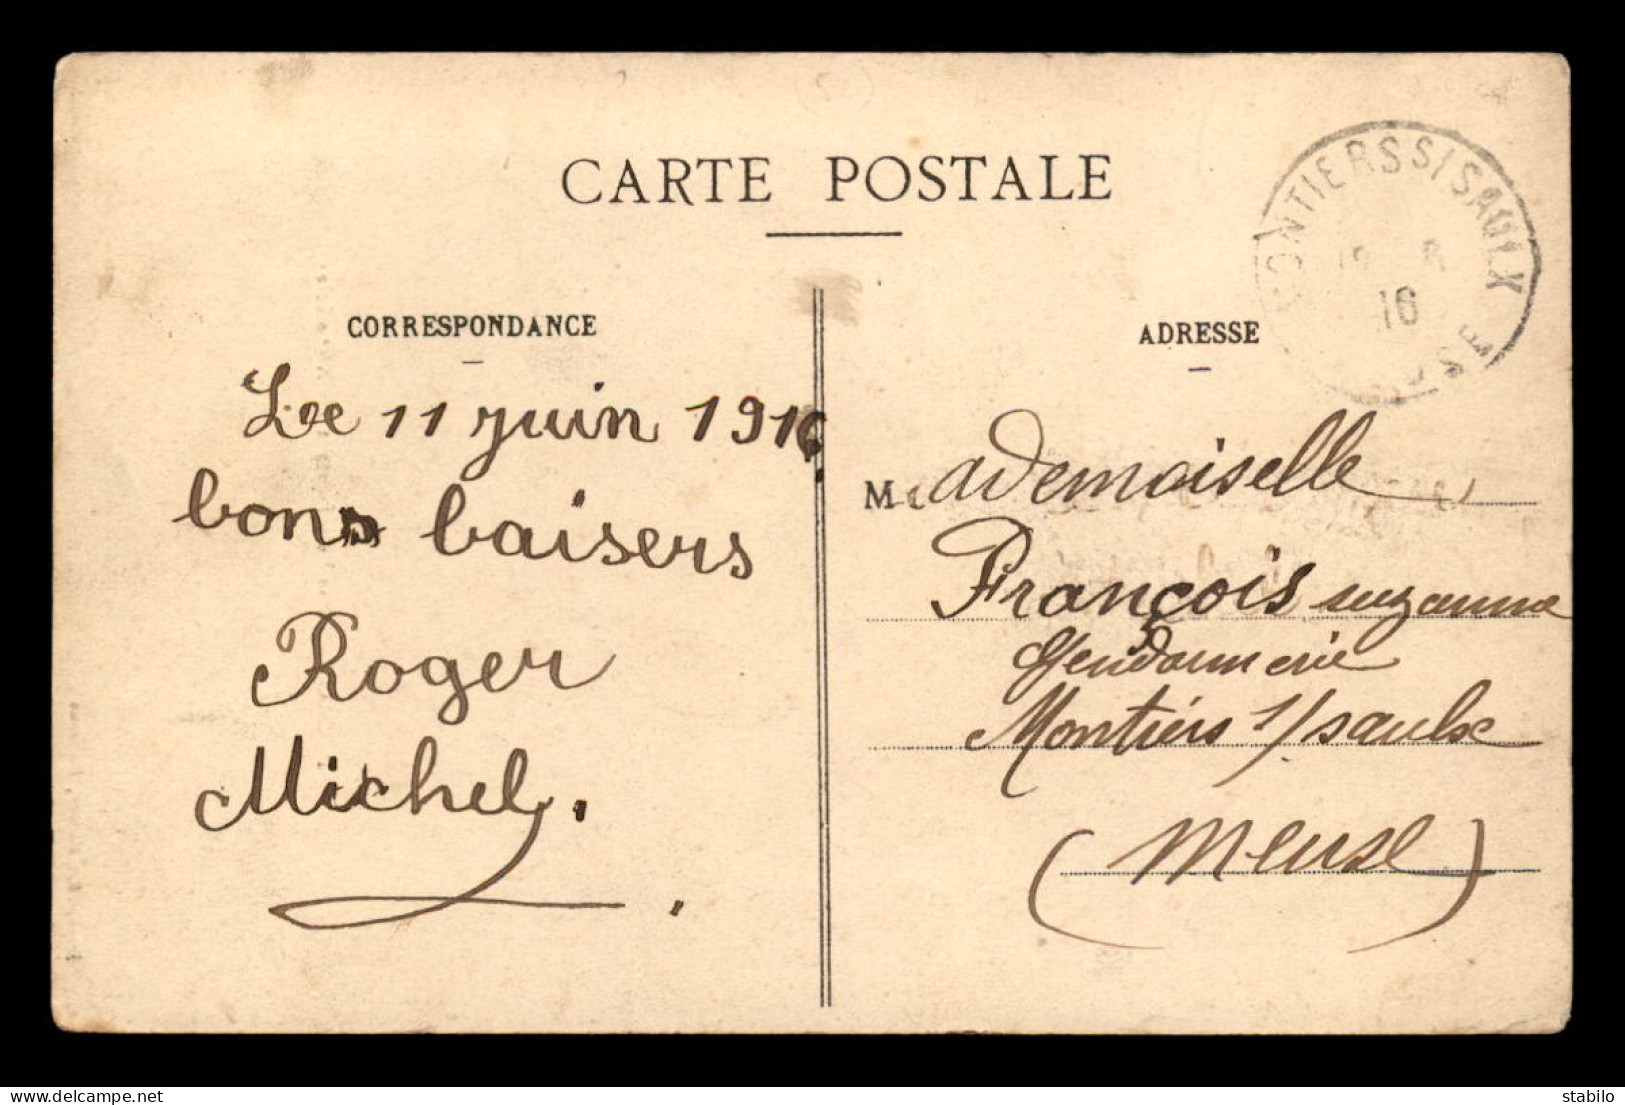 CARTE POSTALE
CORRESPONDANCE
Le 11 juin 1916
bons baisers
Roger
Michel.
ADRESSE
Mademoiselle
François suzanne
Gendarmerie
Montiérs s/saulx
(Meuse)
MONTIERS S/ SAULX
16
MEUSE
delcampe.net
stabilo